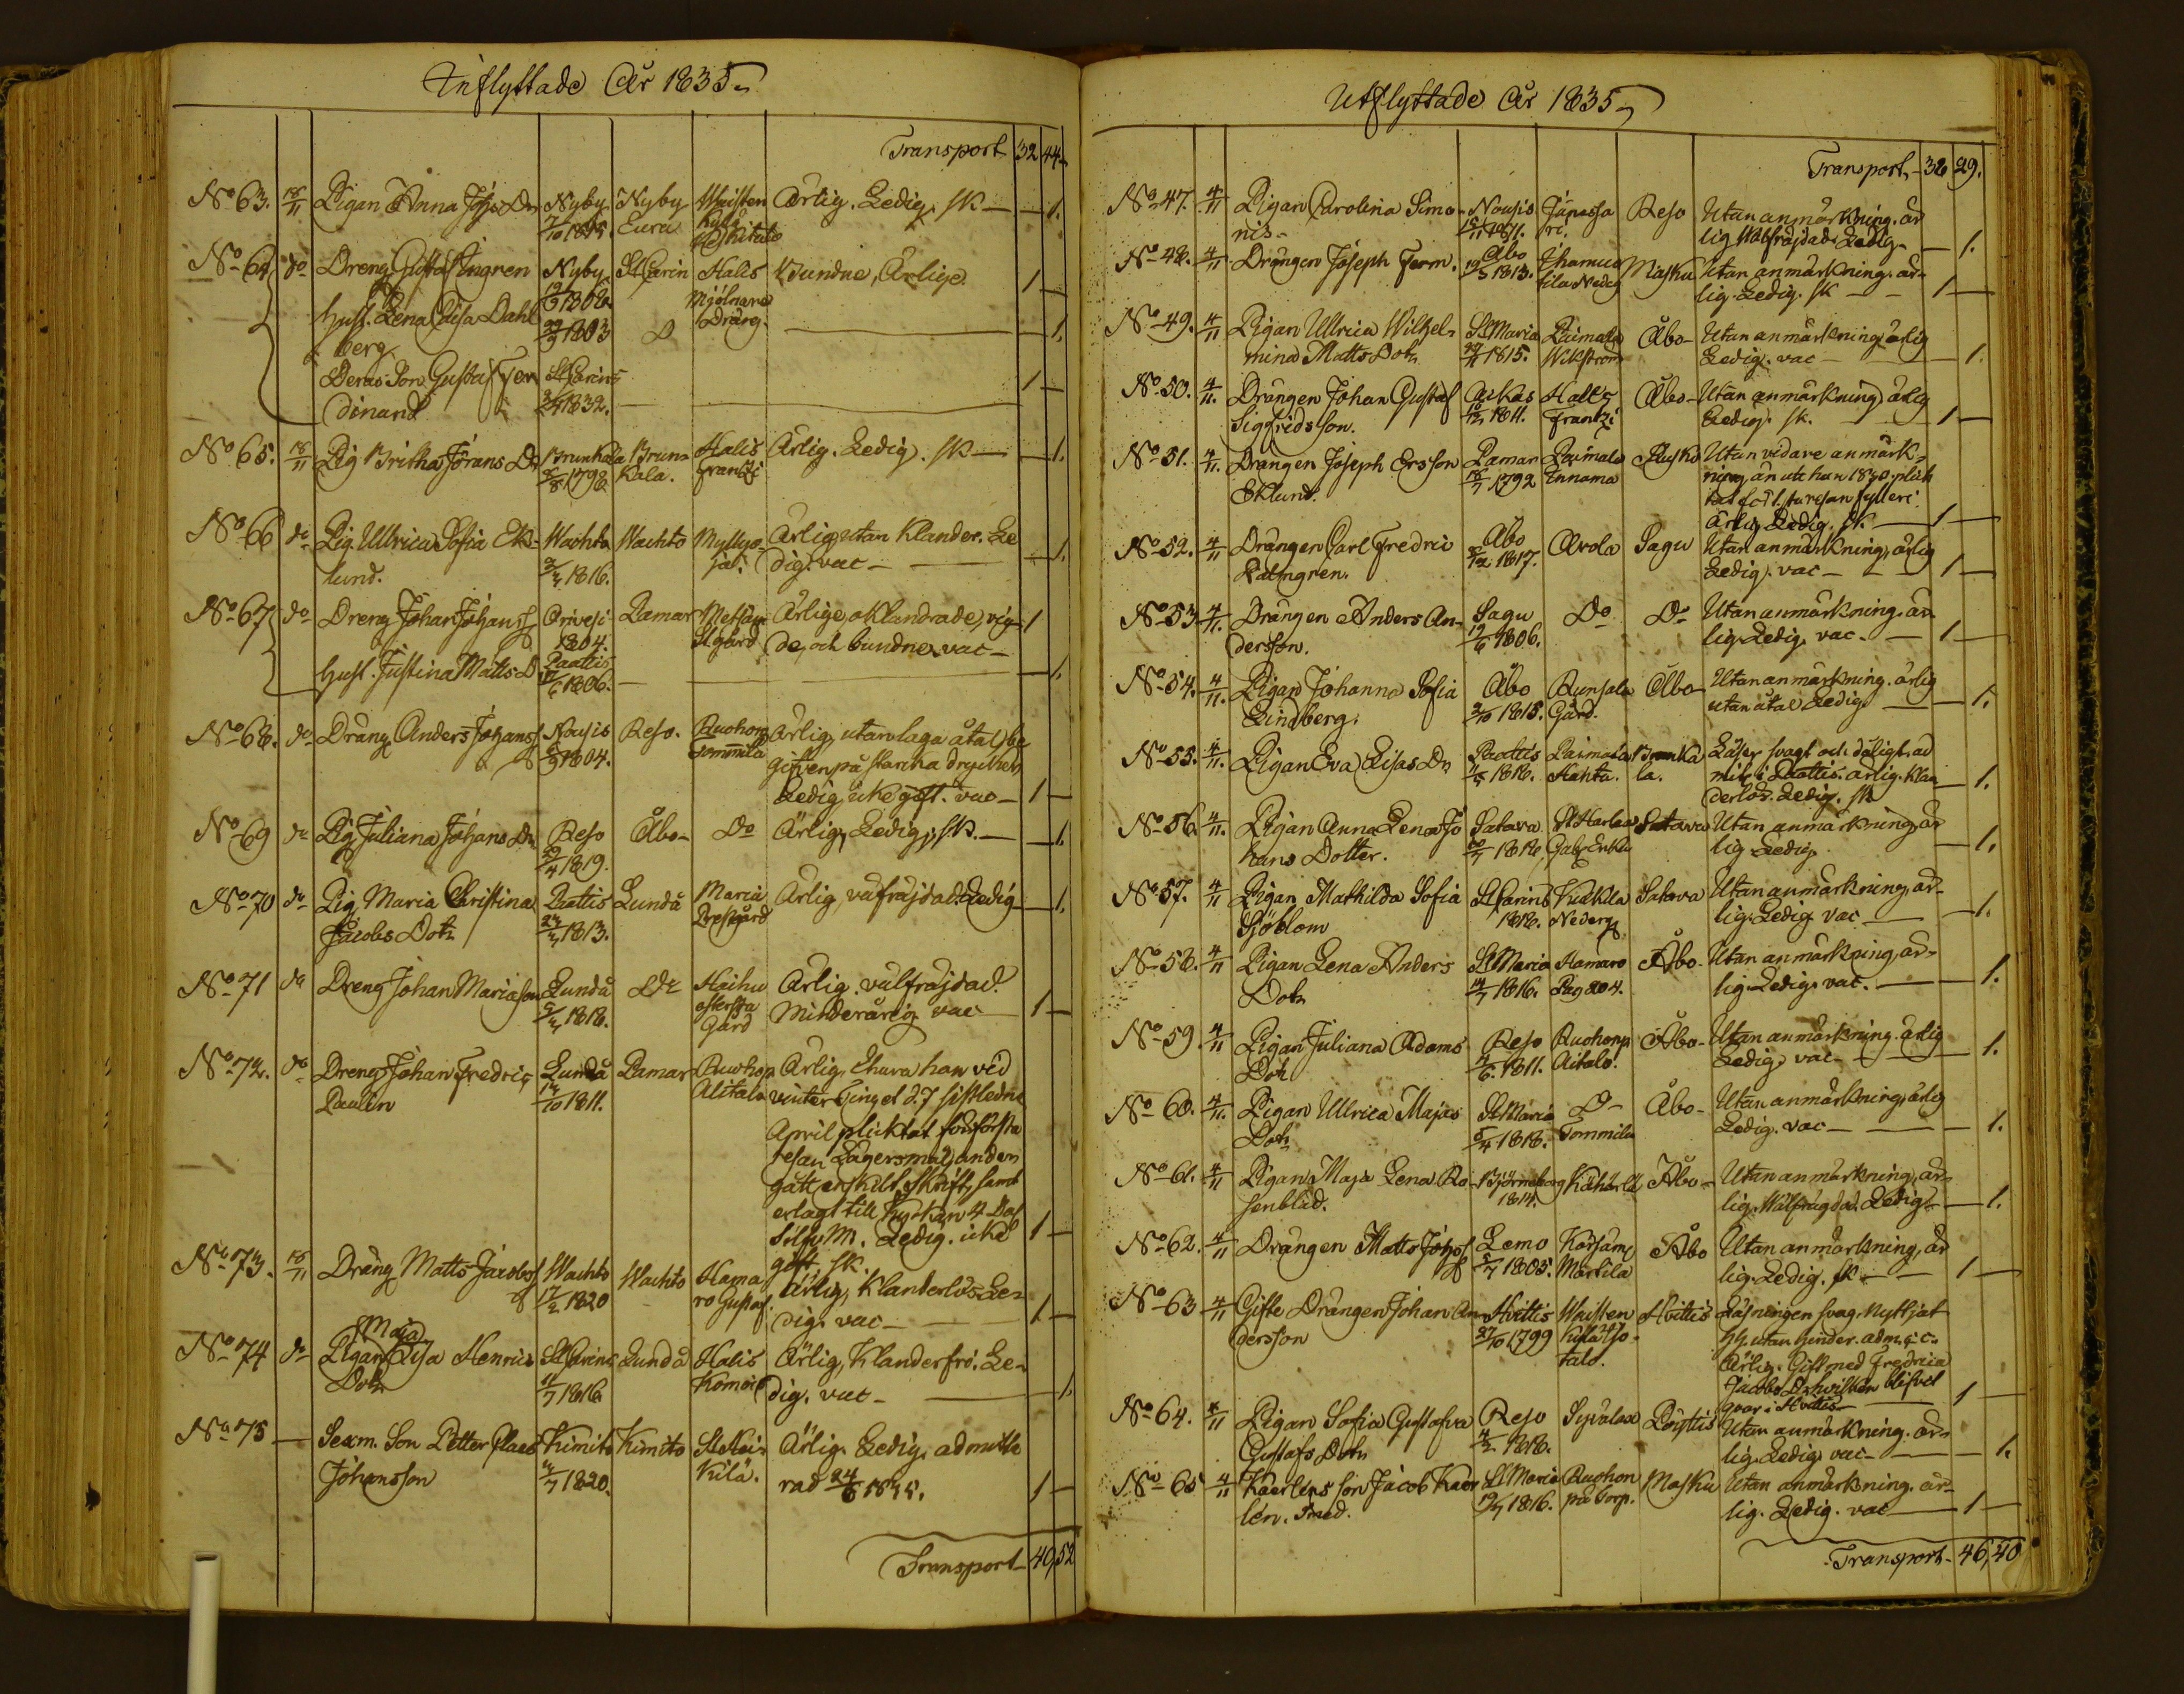 Inflyttade År 1835
Transport 32 44
No 63. 18/11 Pigan Anna Johs Dr Nyby 7/10 1815. Nyby Eura Ärlig. Ledig. sk — 1.
No 64 do Dreng Gustaf Ingren Nyby 19/9 1808. St Carin Halis Mjölnare Dräng. Bundne, Ärlige. 1 —
Hust. Lena Caisa Dahl
berg 1803 — 1.
Deras Son Gustaf Fer
dinand St Carins 1832. 1 —
No 65. 18/11 Pig Britha Jörans Dr Brunkala 1798 Brun
kala. Halis Frantzi Ärlig. Ledig. sk — 1.
No 66 do Pig. Ullrica Sofia Ek-
lund. Wachto 1816. Wachto Ärlig utan klander. Le
dig. vac — 1.
No 67 do Dreng Johan Johanss 1804. Pamar Ärlige, oklandrade, vig
de, och bundne. vac — 1
Hust. Justina Matts D Paattis 1806. — 1.
No 68. do Dräng Anders Johanss Nousis 1804. Reso. Ruohonp
Tommila Ärlig, utan laga åtal, be
gifven på starcka drycker
Ledig, icke gift. vac — 1 —
No 69 do Pig Juliana Johans Dr Reso 29/4 1819. Åbo — Do Ärlig, Ledig, sk. — 1.
No 70 do Pig Maria Christina
Jacobs Dotr Paattis 1813. Lundå Maria
Prestgård Ärlig, välfräjdad. Ledig — 1.
No 71 do Dreng Johan Mariason Lundå 1818. Do
Gård Ärlig. välfräjdad.
Minderårig vac 1 —
No 72. do Dreng Johan Fredric
Paulin Lundå 1811. Pamar Ruohop
Alitalo Ärlig, Ehuru han vid
vinter Tinget d. 7 sistledne
April pliktat för första
resan Lägersmål, under
gått enskilt Skrift, samt
erlagt till Kyrkan 4 Dal
Silfv. Mt. Ledig. icke 1 —
gift. sk.
No 73. 18/11 Dräng Matts Jacobss Wachto 17/2 1820 Wachto Hama
ro Gustaf. Ärlig, klanderlös. Le-
dig. vac — 1 —
No 74 do Pigan Maja Lisa Henrics
Dotr St Carins 11/7 1816 Lundå Halis
Komois Ärlig, klanderfri. Le-
dig. vac — 1.
No 75 — Sexm. Son Petter Claes
Johansson Kimito 4/7 1820. Kimito St Hei-
kilä. Ärlig. Ledig. admitte
rad 24/6 1835. 1 —
Transport — 40, 52
Utflyttade År 1835
Transport — 38 29.
No 47. 4/11 Pigan Carolina Simo-
nis — Nousis 1811. Reso Utan anmärkning. är
lig Wälfräjdad Ledig — 1.
No 48. 4/11 Drängen Joseph Ferm. Åbo 1813. Masku Utan anmärkning. är-
lig. Ledig. sk — 1 —
No 49. 4/11 Pigan Ullrica Wilhel-
mina Matts Dotr St Maria 1815. Raimala
Wikström Åbo — Utan anmärkning, ärlig
Ledig. vac — 1.
No 50. 4/11. Drängen Johan Gustaf
Sigfridsson. Aukas 1811. Halis
Frantzi Åbo — Utan anmärkning, ärlig
Ledig. sk. 1 —
No 51. 4/11. Drängen Joseph Ersson
Eklund. Pamar 18/7 1792 Raimala
Ennama Rusko Utan vidare anmärk-
ning, än att han 1830 plik
tat för 1:sta resan fylleri
Ärlig Ledig. sk — 1 —
No 52. 4/11 Drängen Carl Fredric
Palmgren. Åbo 1817. Arola Sagu Utan anmärkning, ärlig
Ledig. vac — 1 —
No 53 4/11. Drängen Anders An-
dersson. Sagu 19/6 1806. Do Do Utan anmärkning. är-
lig. Ledig, vac — 1 —
No 54. 4/11. Pigan Johanna Sofia
Lindberg. Åbo 3/10 1815. Runsala
Gård. Åbo — Utan anmärkning. ärlig
utan åtal Ledig — 1.
No 55. 4/11. Pigan Eva Lisas Dr Paattis 1818. Raimala Brunka
la. Läser svagt och dåligt ad
mit i Paattis. ärlig. klan
derlös. Ledig. sk — 1.
No 56. 4/11. Pigan Anna Lena Jo
hans Dotter. Satava 1818. Satava Utan anmärkning är
lig Ledig. — 1.
No 57. 4/11 Pigan Mathilda Sofia
Sjöblom St Carins 1818. Nederg. Satava Utan anmärkning, är-
lig. Ledig vac — 1.
No 58. 4/11 Pigan Lena Anders
Dotr St Maria 14/7 1816. Hamaro
Pag 204. Åbo — Utan anmärkning, är-
lig. Ledig. vac. — 1.
No 59. 4/11 Pigan Juliana Adams
Dotr Reso 1811. Ruohonp
Aitalo. Åbo — Utan anmärkning. ärlig
Ledig, vac — 1.
No 60. 4/11. Pigan Ullrica Majas
Dotr St Maria 1818. Do
Tommila Åbo — Utan anmärkning, ärlig
Ledig. vac — 1.
No 61. 4/11 Pigan Maja Lena Ro-
senblad. Björneborg 1814. Kähärlä Åbo — Utan anmärkning, är-
lig. Wälfräjdad. Ledig — 1.
No 62. 4/11 Drängen Matts Johss Lemo 1805. Karsam
Martila Åbo Utan anmärkning, är
lig. Ledig. sk — 1 —
No 63 4/11 Gifte Drängen Johan An
dersson Hvittis 27/10 1799 Hvittis Läsningen svag. Nyttjat
H.H. utan hinder. adm. &c.
Ärlig. Gift med Fredrica
Jacobs Dr hvilken blifvit
qvar i Hvittis — 1 —
No 64. 4/11 Pigan Sofia Gustafva
Gustafs Dotr Reso 1818. Syvälax Pöyttis Utan anmärkning. är-
lig. Ledig, vac — 1.
No 65 4/11 Kaerlens son Jacob Kaer
lén. Smed. St Maria 1816. Ruohon
pä Torp. Masku Utan anmärkning. är-
lig. Ledig. vac — 1 —
Transport — 46, 40